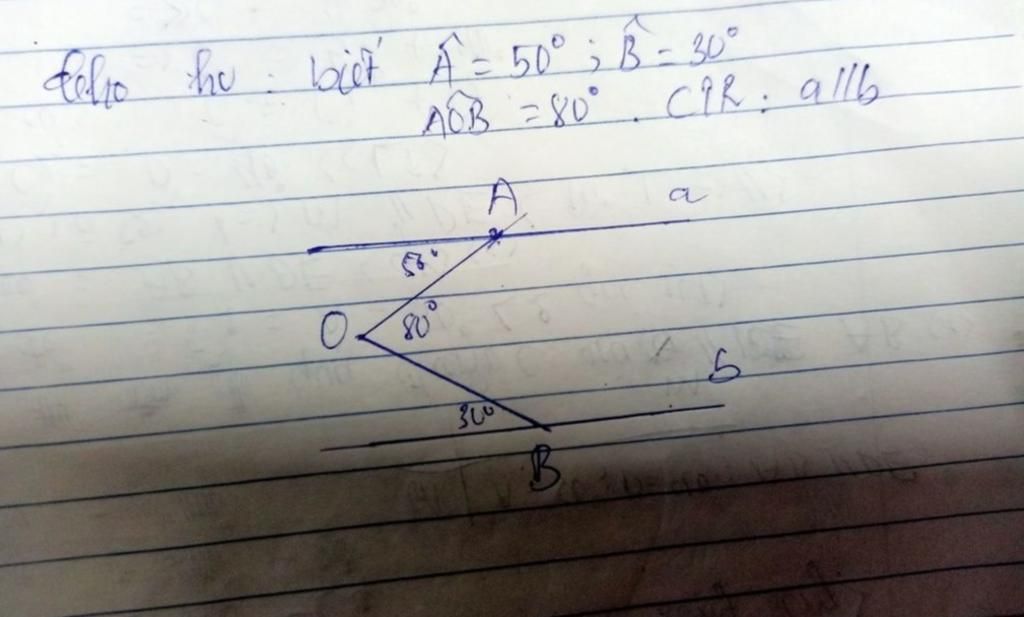 Cho hv : biết Â = 50° ; B̂ = 30°
AÔB = 80° . CMR : a//b
A a
50°
O 80°
b
30°
B